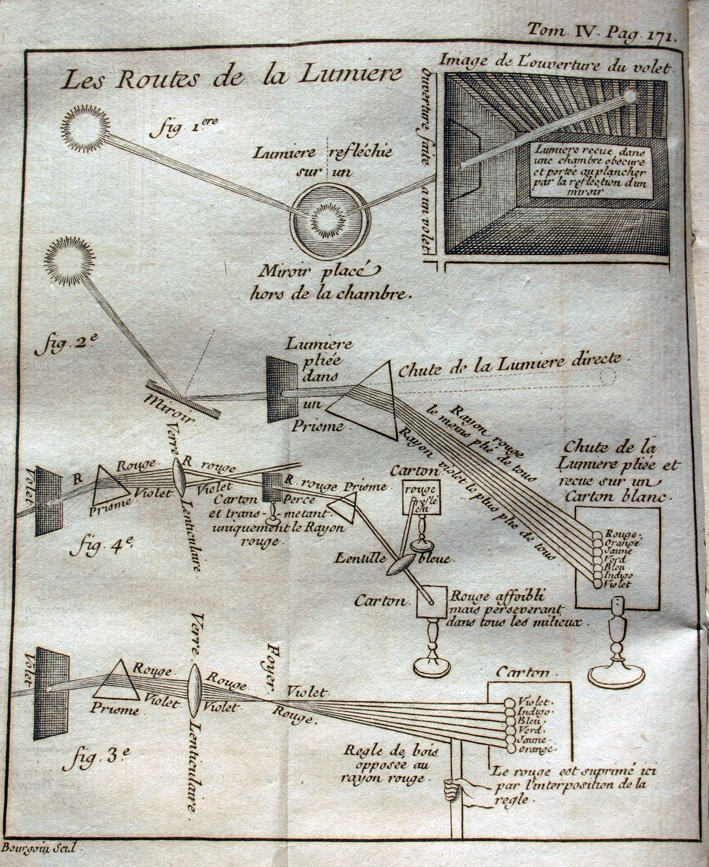 Tom. IV. Pag. 171.
Les Routes de la Lumiere
Image de L'ouverture du volet.
fig 1.ere
Lumiere reflêchie
sur un
Miroir placé
hors de la chambre.
Ouverture faite a un volet
Lumiere recue dans
une chambre obscure
et portée au plancher
par la reflection d'un
miroir
fig. 2.e
Miroir
Lumiere
pliée
dans
un
Prisme
Chute de la Lumiere directe.
Rayon rouge
le moins plié de tous
Rayon violet le plus plié de tous
Chute de la
Lumiere pliée et
recue sur un
Carton blanc.
Rouge.
Orange
Jaune
Verd
Bleu
Indigo
Violet
Volet
R
Prisme
Rouge
Violet
Verre
Lenticulaire
R. rouge
Violet
Carton
et trans-
R. rouge
Percé
metant
uniquement le Rayon
rouge.
Prisme.
Carton
rouge
reflé
chi
Lentille bleue.
Carton.
Rouge affoibli
mais perseverant
dans tous les milieux.
fig. 4.e
Volet
Prisme
Rouge
Violet
Verre
Lenticulaire
Rouge
Violet
Foyer.
Violet.
Rouge.
Carton
Violet.
Indigo.
Bleu.
Verd.
Jaune.
Orange.
Regle de bois
opposée au
rayon rouge.
Le rouge est suprimé ici
par l'interposition de la
regle.
fig. 3.e
Bourgoin Scul.